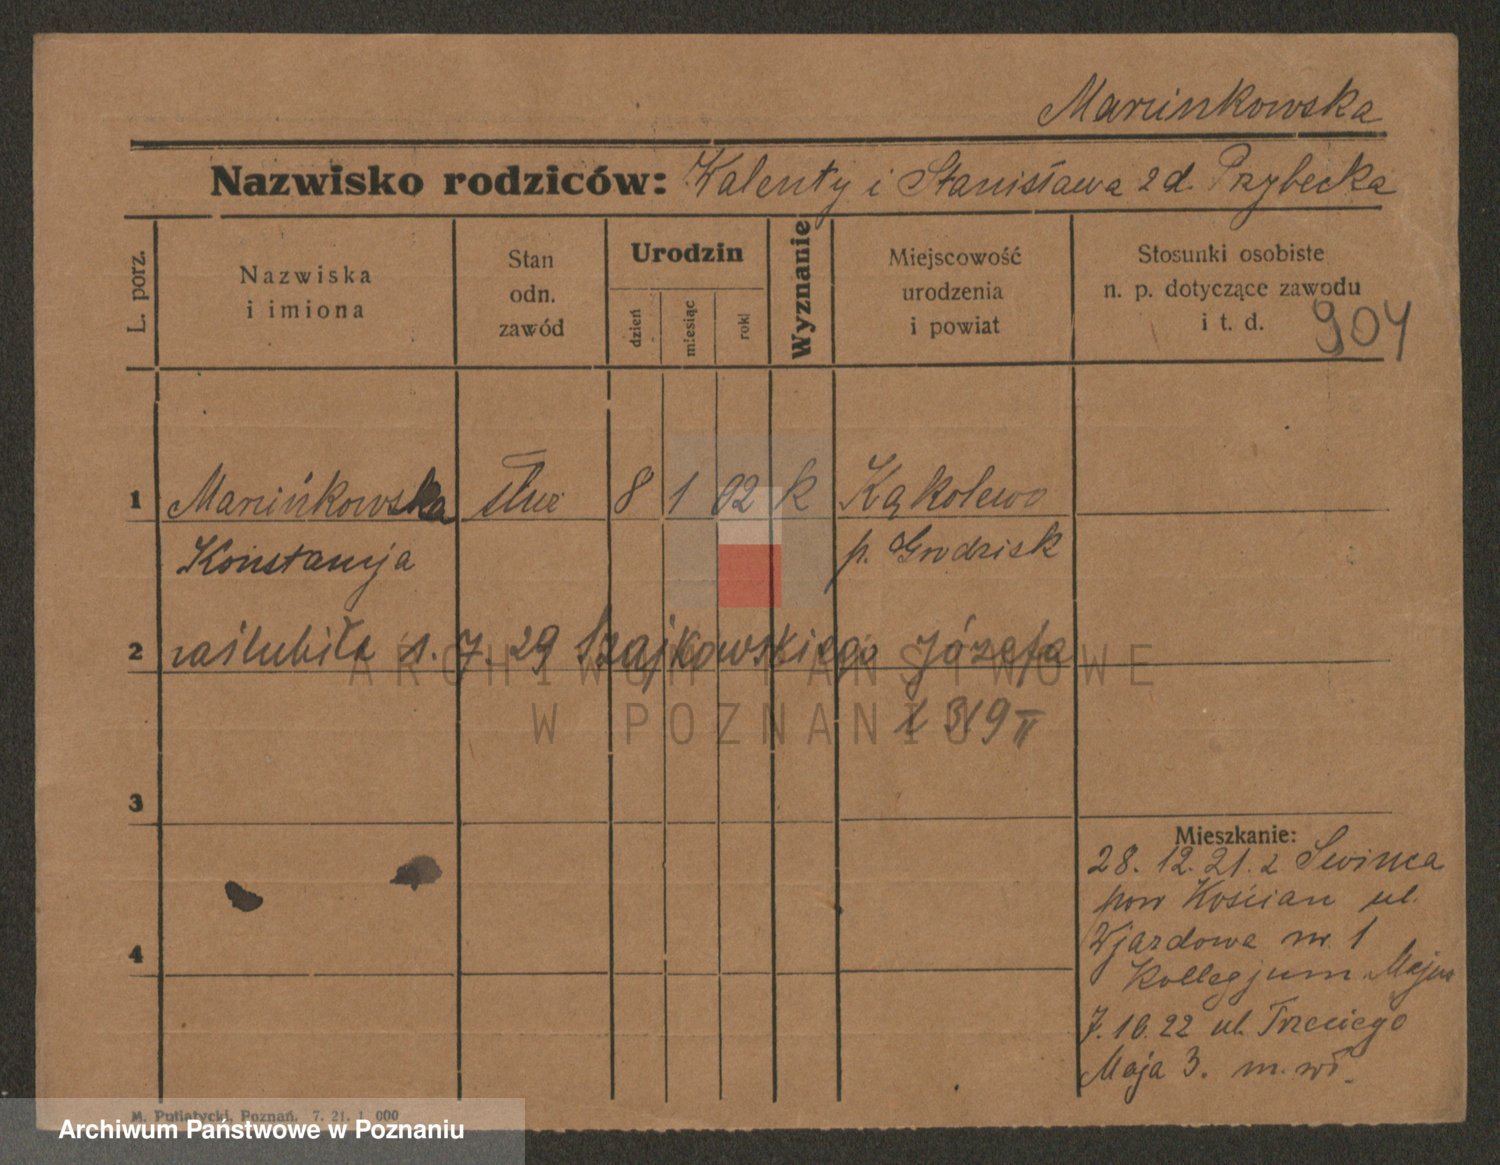 Marcinkowska
Nazwisko rodziców: Walenty i Stanisława z d. Przybecka
L. porz.
Nazwiska
i imiona
Stan
odn.
zawód
Urodzin
dzień
miesiąc
rok
Wyznanie
Miejscowość
urodzenia
i powiat
Stosunki osobiste
n. p. dotyczące zawodu
i t. d.
904
1 Marcińkowska służ 8 1 02 k Kąkolewo
Konstancja p. Grodzisk
2 zaślubiła 1. 7. 29 Szajkowskiego Józefa
1319 II
3
4
Mieszkanie:
28. 12. 21. z
pow Kościan ul.
Wjazdowa nr. 1
Kollegjum Majus
7. 10. 22 ul. Trzeciego
Maja 3. m. wł.
M. Putiatycki, Poznań. 7. 21. 1 000
ARCHIWUM PAŃSTWOWE
W POZNANIU
Archiwum Państwowe w Poznaniu